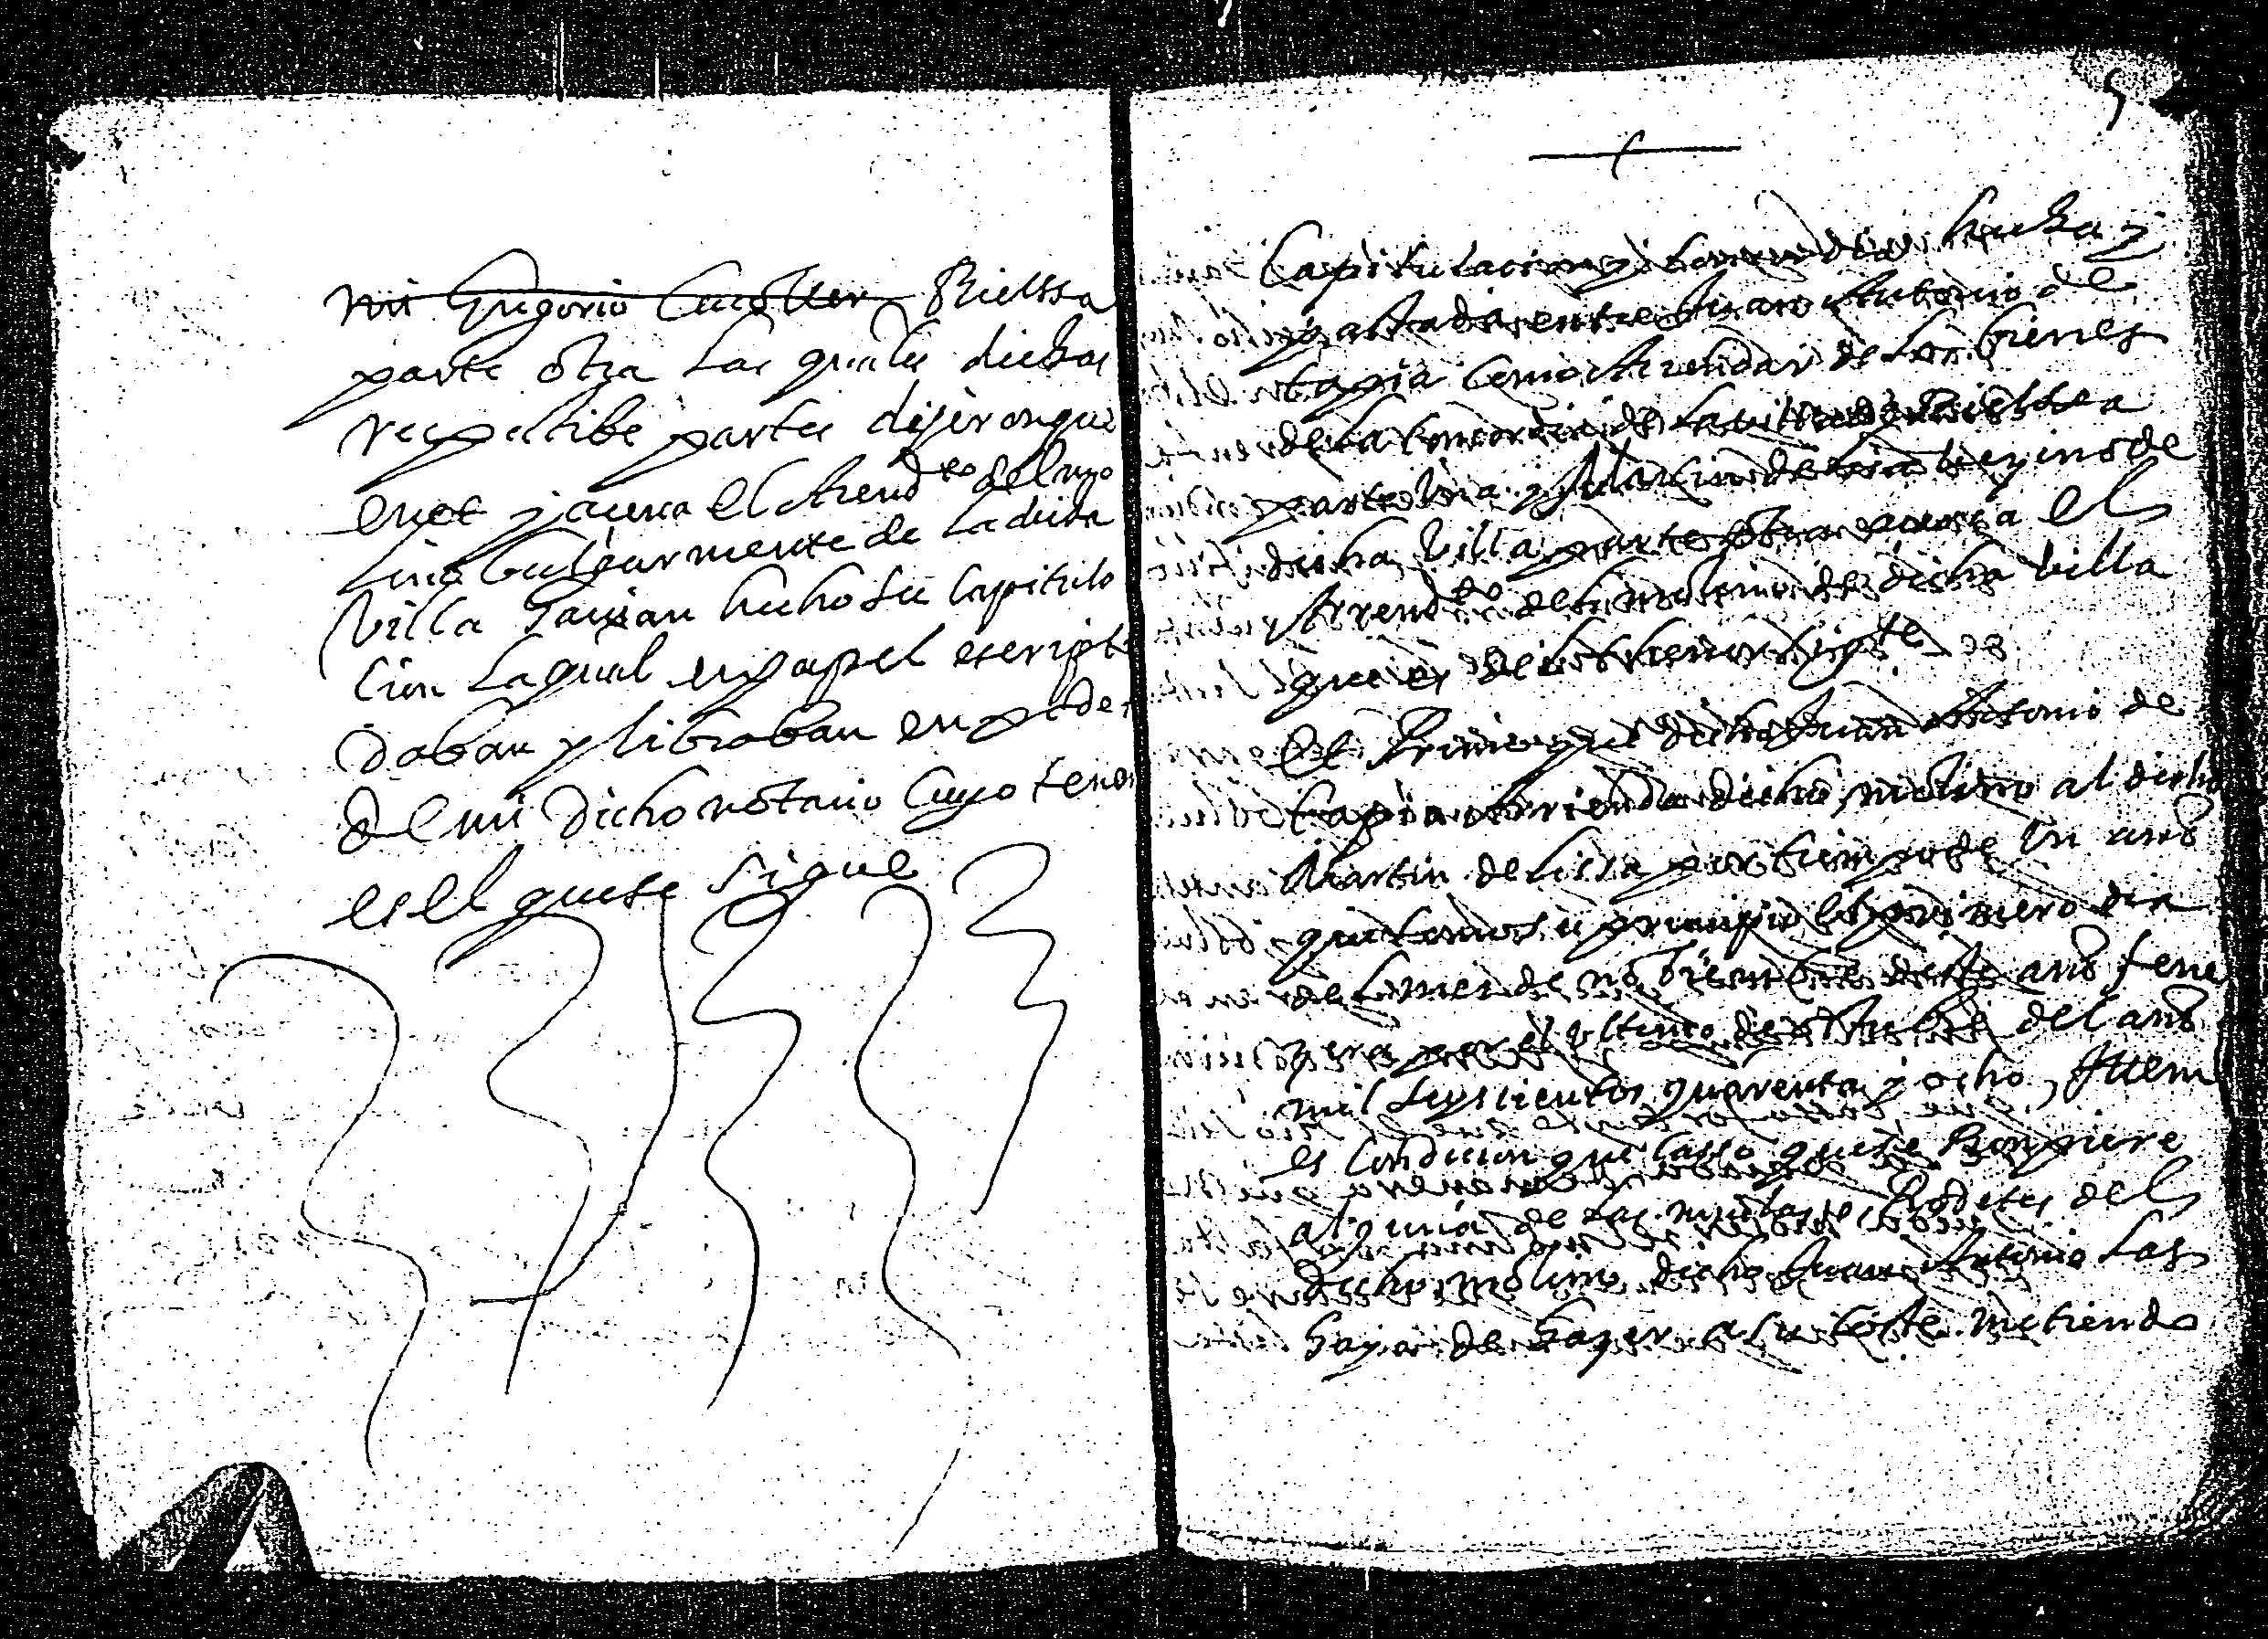 mi Grigorio Cascller Bielssa
parte otra las quales dichas
respectibe partes dijeron que
en et y acerca el Arend.to del mo
lino bulgarmente de la dicha
villa Javian hecho su Capitula
cion la qual en papel escripta
daban y libraban en poder
del mi dicho notario cuyo tenor
es el que se sigue
5
Capitulacion y concordia hecha y
pactada entre Juan Antonio de
tapia como Arrendar de los bienes
de la concordia de la villa de Bielssa
parte una y Martin de lissa vezino de
dicha villa parte otra acerca el
Arrend.to del molino de dicha villa
que es del thenor sig.te
Et Primo que dicho Juan Antonio de
tapia Arrienda dicho molino al dicho
Martin de lissa por tiempo de un año
que tomo su principio el primero dia
del mes de nobiembre deste año fene
zera por el ultimo de octubre del año
mil seyscientos quarenta y ocho, Ittem
es condicion que casso que se Rompiere
alguna de las muelas o Rodetes del
dicho molino dicho Juan Antonio las
haya de hazer a su coste metiendo